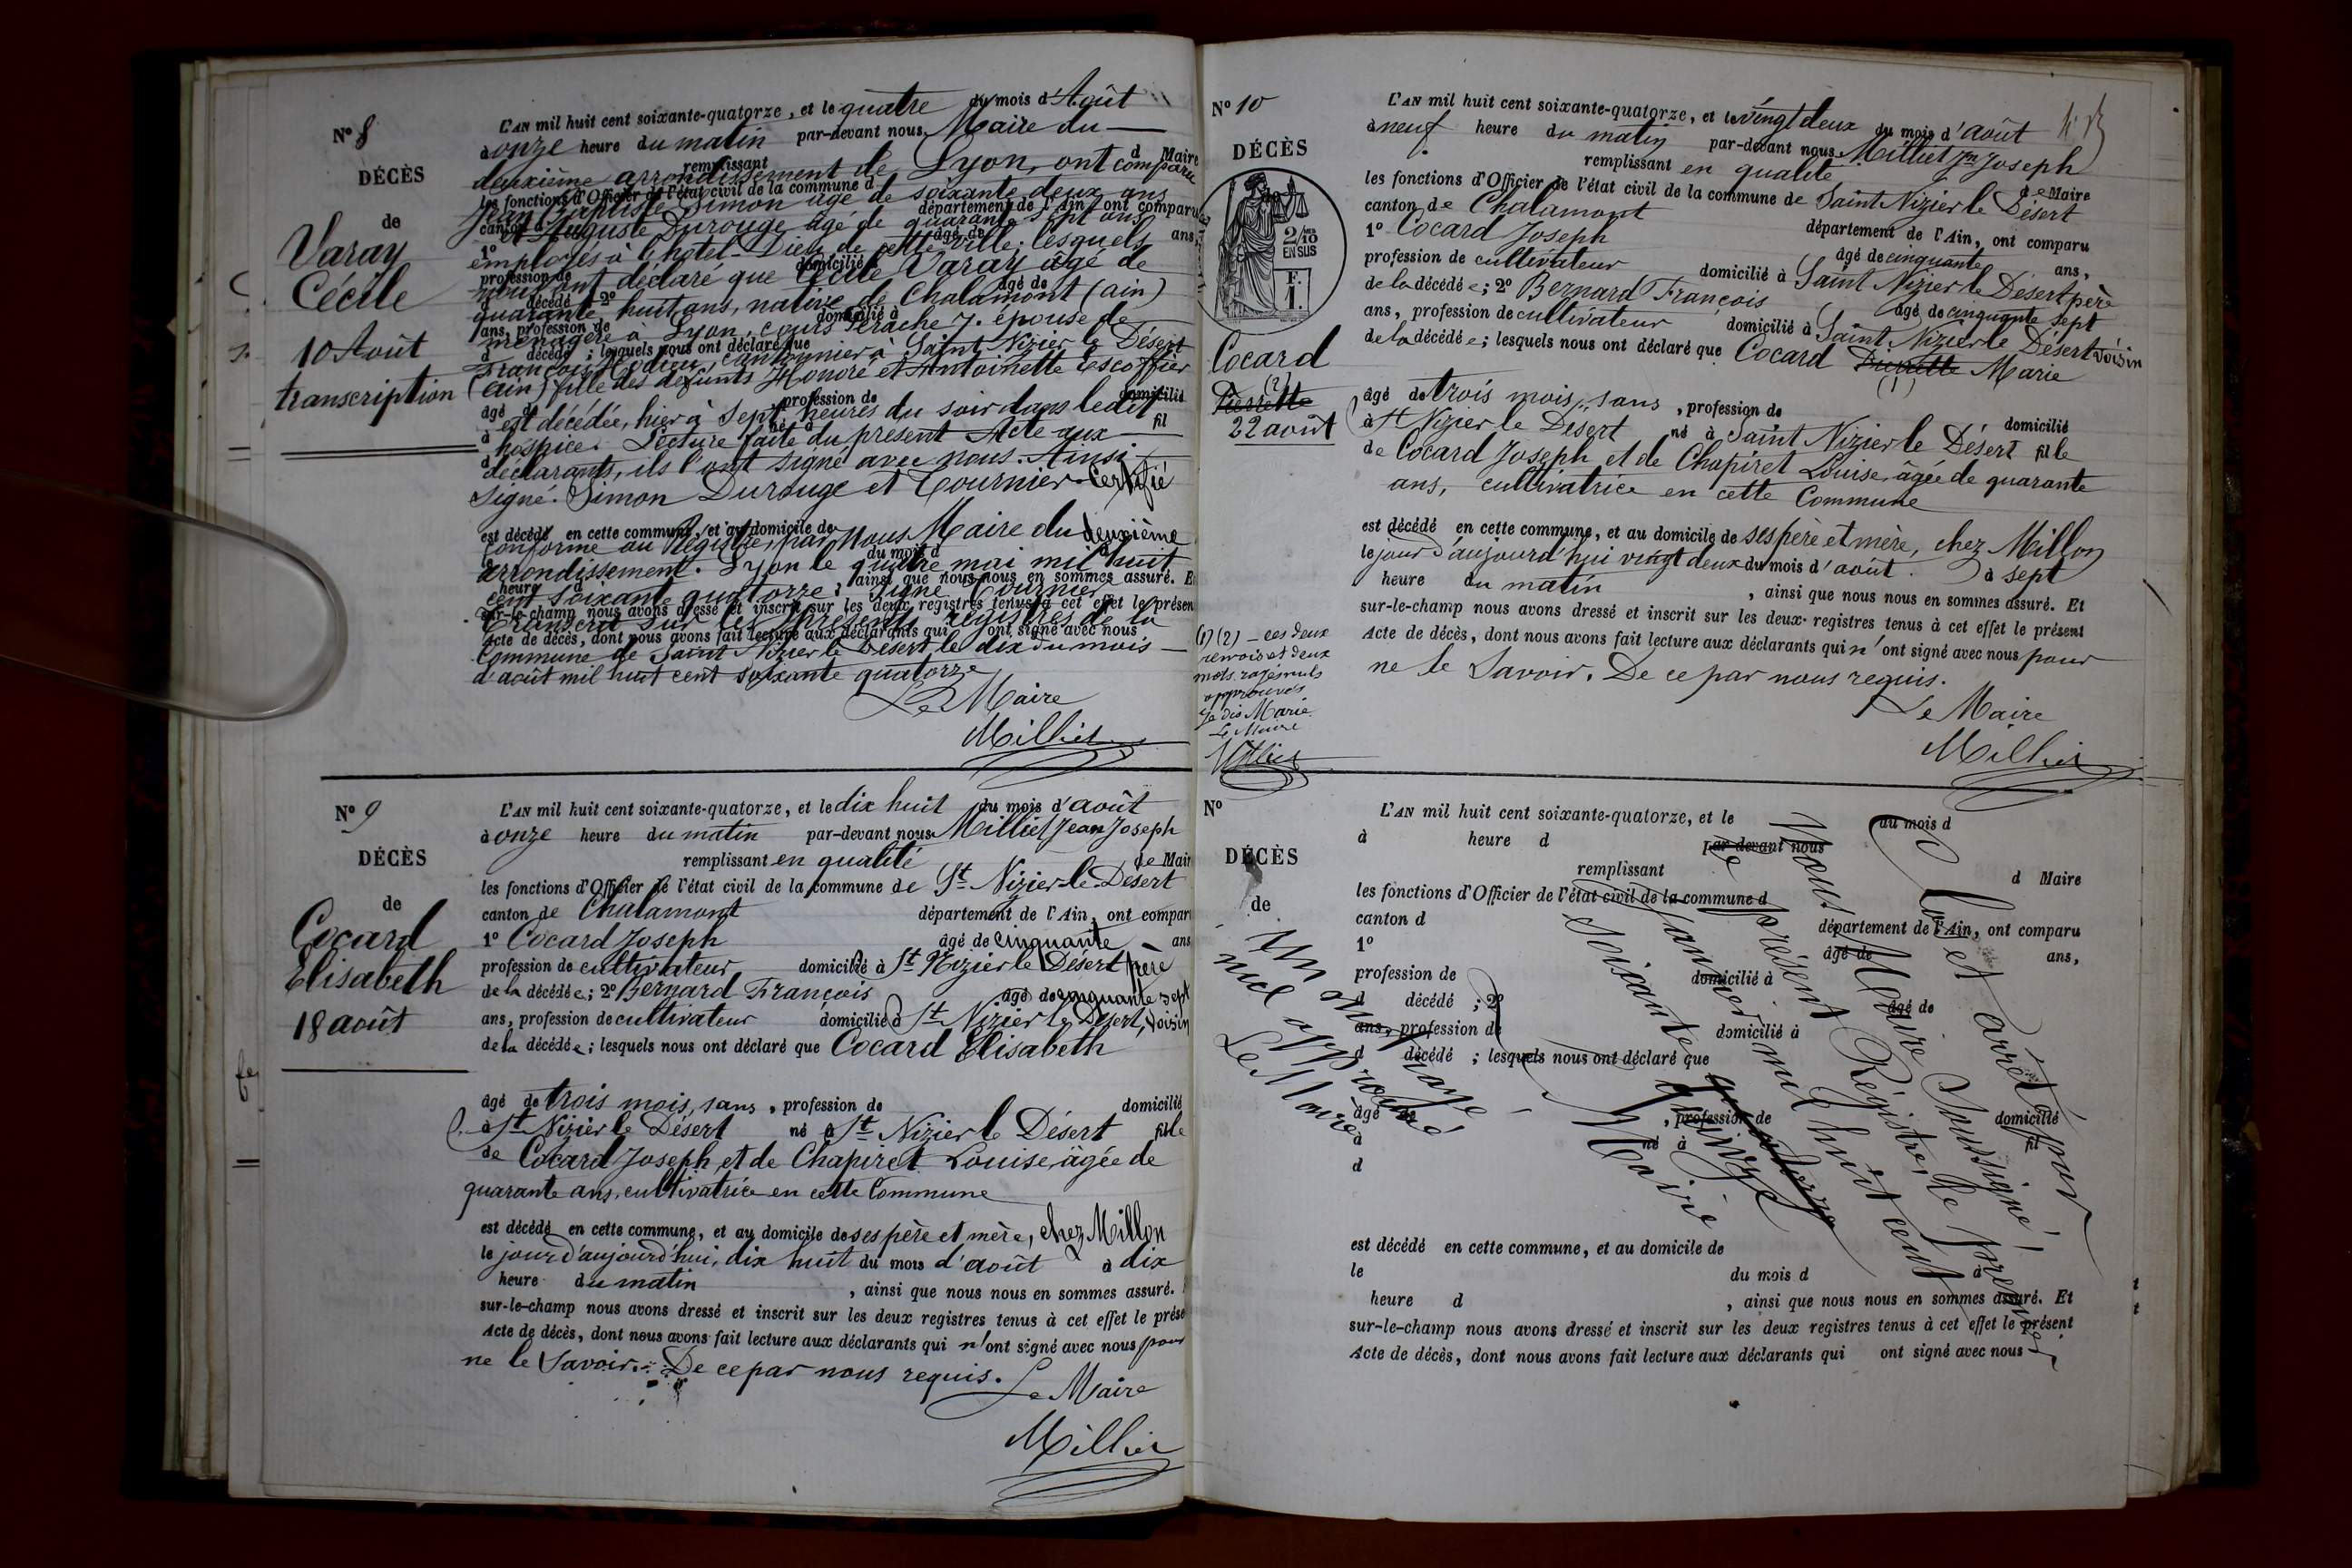 N° 8
DÉCÈS
de
Varay
Cécile
10 Août
transcription
L'AN mil huit cent soixante-quatorze, et le quatre du mois d'Août
à onze heure du matin par-devant nous Maire du
d Maire
remplissant
deuxième arrondissement de Lyon, ont comparu
les fonctions d'Officier de l'état civil de la commune d
Jean Baptiste Simon âgé de soixante deux ans
département de l'Ain, ont comparu
canton d
et Auguste Durouge âgé de quarante sept ans
1° âgé de ans,
employés à l'hôtel-Dieu de cette ville; lesquels
profession de domicilié
nous ont déclaré que Cécile Varay âgé de
d décédé ; 2° âgé de
quarante huit ans, native de Chalamont (ain)
ans, profession de domicilié à
ménagère à Lyon, cours Perache 7. épouse de
d décédé ; lesquels nous ont déclaré que
François cantonnier à Saint Nizier le Désert
(ain) fille des défunts Honoré et Antoinette Escoffier
âgé de , profession de domicilié
est décédée, hier à sept heures du soir dans ledit
à né à fil
hospice. Lecture faite du présent Acte aux
d
déclarants, ils l'ont signé avec nous. Ainsi
Signé. Simon Durouge et Tournier Certifié
est décédé en cette commune, et au domicile de
conforme au Registre, par Nous Maire du deuxième
le du mois d à
arrondissement. Lyon le quatre mai mil huit
heure d , ainsi que nous nous en sommes assuré. E
cent soixante quatorze. Signé Tournier
sur-le-champ nous avons dressé et inscrit sur les deux registres tenus à cet effet le présen
Transcrit sur les présents registres de la
Acte de décès, dont nous avons fait lecture aux déclarants qui ont signé avec nous
Commune de Saint Nizier le Désert, le dix du mois
d'août mil huit cent soixante quatorze
Le Maire
Milliet
N° 9
DÉCÈS
de
Cocard
Elisabeth
18 août
L'AN mil huit cent soixante-quatorze, et le dix huit du mois d'août
à onze heure du matin par-devant nous Milliet Jean Joseph
remplissant en qualité de Mair
les fonctions d'Officier de l'état civil de la commune de St Nizier le Désert
canton de Chalamont département de l'Ain, ont compar
1° Cocard Joseph âgé de cinquante ans
profession de cultivateur domicilié à St Nizier le Désert père
de la décédée; 2° Bernard François âgé de cinquante sept
ans, profession de cultivateur domicilié à St Nizier le Désert, voisin
de la décédée; lesquels nous ont déclaré que Cocard Elisabeth
âgé de trois mois, sans , profession de domicilié
à St Nizier le Désert né à St Nizier le Désert fille
de Cocard Joseph, et de Chapiret Louise, âgée de
quarante ans, cultivatrice en cette Commune
est décédé en cette commune, et au domicile de ses père et mère, chez Millon
le jour d'aujourd'hui, dix huit du mois d'août à dix
heure du matin , ainsi que nous nous en sommes assuré.
sur-le-champ nous avons dressé et inscrit sur les deux registres tenus à cet effet le prése
Acte de décès, dont nous avons fait lecture aux déclarants qui n'ont signé avec nous pour
ne le savoir. De ce par nous requis.
Le Maire
Milliet
N° 10
DÉCÈS
2/10
EN SUS
F.
1.
Cocard
(2)
Pierrette
22 août
L'AN mil huit cent soixante-quatorze, et le vingt deux du mois d'août
à neuf heure du matin par-devant nous Milliet Jn Joseph
remplissant en qualité de Maire
les fonctions d'Officier de l'état civil de la commune de Saint Nizier le Désert
canton de Chalamont département de l'Ain, ont comparu
1° Cocard Joseph âgé de cinquante ans,
profession de cultivateur domicilié à Saint Nizier le Désert père
de la décédée; 2° Bernard François âgé de cinquante sept
ans, profession de cultivateur domicilié à Saint Nizier le Désert voisin
de la décédée; lesquels nous ont déclaré que Cocard Pierrette Marie
(1)
âgé de trois mois, sans , profession de domicilié
à St Nizier le Désert né à Saint Nizier le Désert fille
de Cocard Joseph et de Chapiret Louise, âgée de quarante
ans, cultivatrice en cette Commune
est décédé en cette commune, et au domicile de ses père et mère, chez Millon
le jour d'aujourd'hui vingt deux du mois d'août à sept
heure du matin , ainsi que nous nous en sommes assuré. Et
sur-le-champ nous avons dressé et inscrit sur les deux registres tenus à cet effet le présent
Acte de décès, dont nous avons fait lecture aux déclarants qui n'ont signé avec nous pour
ne le savoir. De ce par nous requis.
Le Maire
Milliet
(1) (2) - ces deux
renvois et deux
mots rayés nuls
approuvés
je dis Marie
Le Maire
Milliet
N°
DÉCÈS
de
L'AN mil huit cent soixante-quatorze, et le du mois d
à heure d par-devant nous
remplissant d Maire
les fonctions d'Officier de l'état civil de la commune d
canton d département de l'Ain, ont comparu
1° âgé de ans,
profession de domicilié à
d décédé ; 2° âgé de
ans, profession de domicilié à
d décédé ; lesquels nous ont déclaré que
âgé de , profession de domicilié
à né à fil
d
est décédé en cette commune, et au domicile de
le du mois d à
heure d , ainsi que nous nous en sommes assuré. Et
sur-le-champ nous avons dressé et inscrit sur les deux registres tenus à cet effet le présent
Acte de décès, dont nous avons fait lecture aux déclarants qui ont signé avec nous
Clos et arrêté par
Nous Maire Soussigné
le présent Registre, le premier
janvier mil huit cent
soixante quatorze
quinze
Le Maire
Un mot rayé
nul approuvé
Le Maire